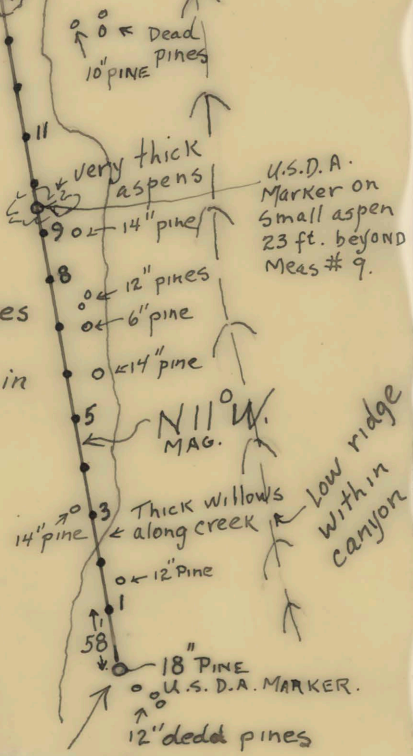 Dead
pines
10" PINE
11
very thick
aspens
U.S.D.A.
Marker on
small aspen
23 ft. beyond
Meas # 9.
9
14" pine
8
12" pines
es
6" pine
14" pine
in
5
N 11° W.
MAG.
Low ridge
within
canyon
Thick willows
along creek
3
14" pine
12" Pine
1
58'
18" PINE
U.S.D.A. MARKER.
12" dedd pines